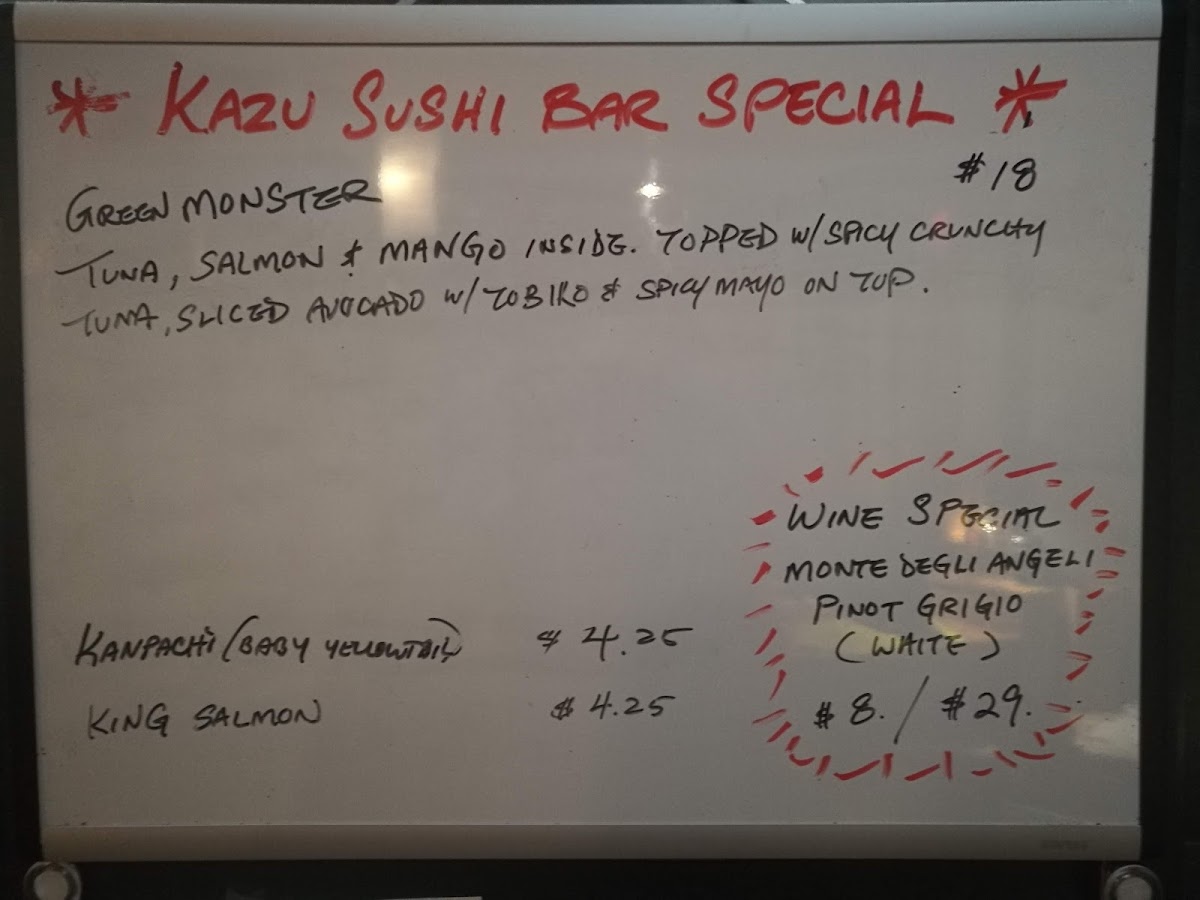 * KAZU SUSHI BAR SPECIAL *
GREEN MONSTER $18
TUNA, SALMON & MANGO INSIDE. TOPPED W/ SPICY CRUNCHY
TUNA, SLICED AVOCADO W/ TOBIKO & SPICY MAYO ON TOP.
WINE SPECIAL
MONTE DEGLI ANGELI
PINOT GRIGIO
(WHITE)
$8. / $29.
KANPACHI (BABY YELLOWTAIL) $4.25
KING SALMON $4.25